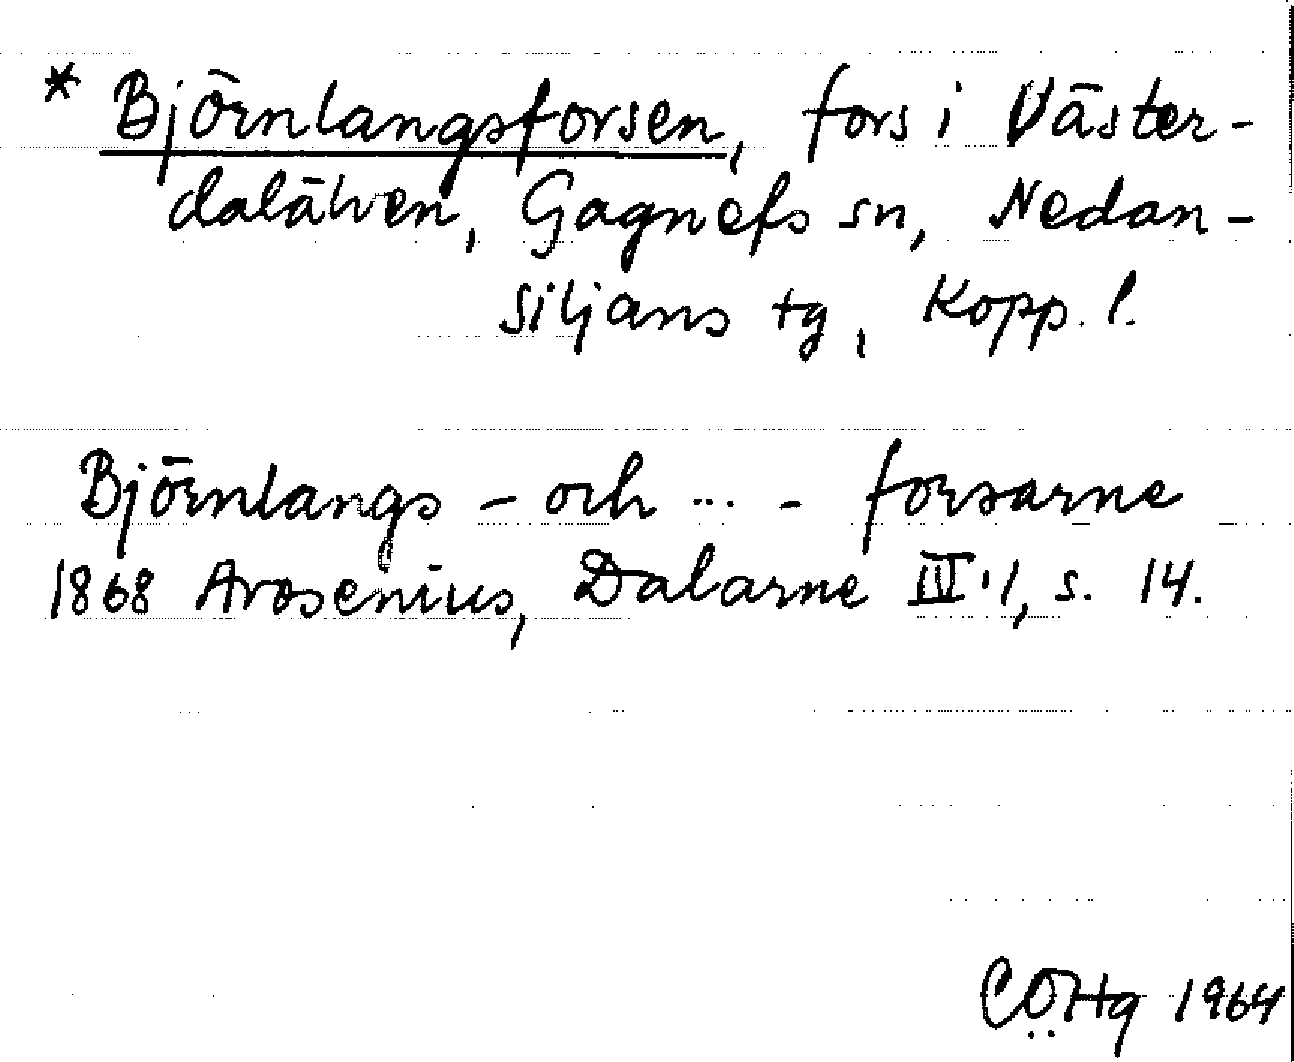 * Björnlangsforsen, fors i Väster-
dalälven, Gagnefs sn, Nedan-
siljans tg, Kopp. l.
Björnlangs - och ... - forsarne
1868 Arosenius, Dalarne IV:1, s. 14.
CÖHg 1964